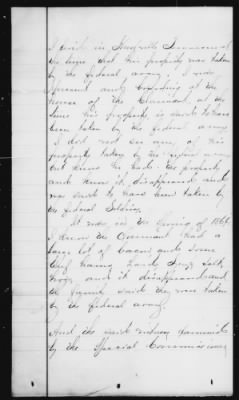 I lived in Knoxville Tennessee at
the time that his property was taken
by the federal army. I was
present and boarding at the
house of the Claimant at the
time his property is said to have
been taken by the federal army
I did not see any of his
property taken by the army
but knew he had the property
and knew it disappeared and
was said to have been taken by
the federal Soldiers
It was in the Spring of 1864
I knew the Claimant had a
large lot of bacon and some
beef hams, lard, Salt,
and it disappeared and
the family said they were taken
by the federal army
And the said witness
by the Special Commissioner